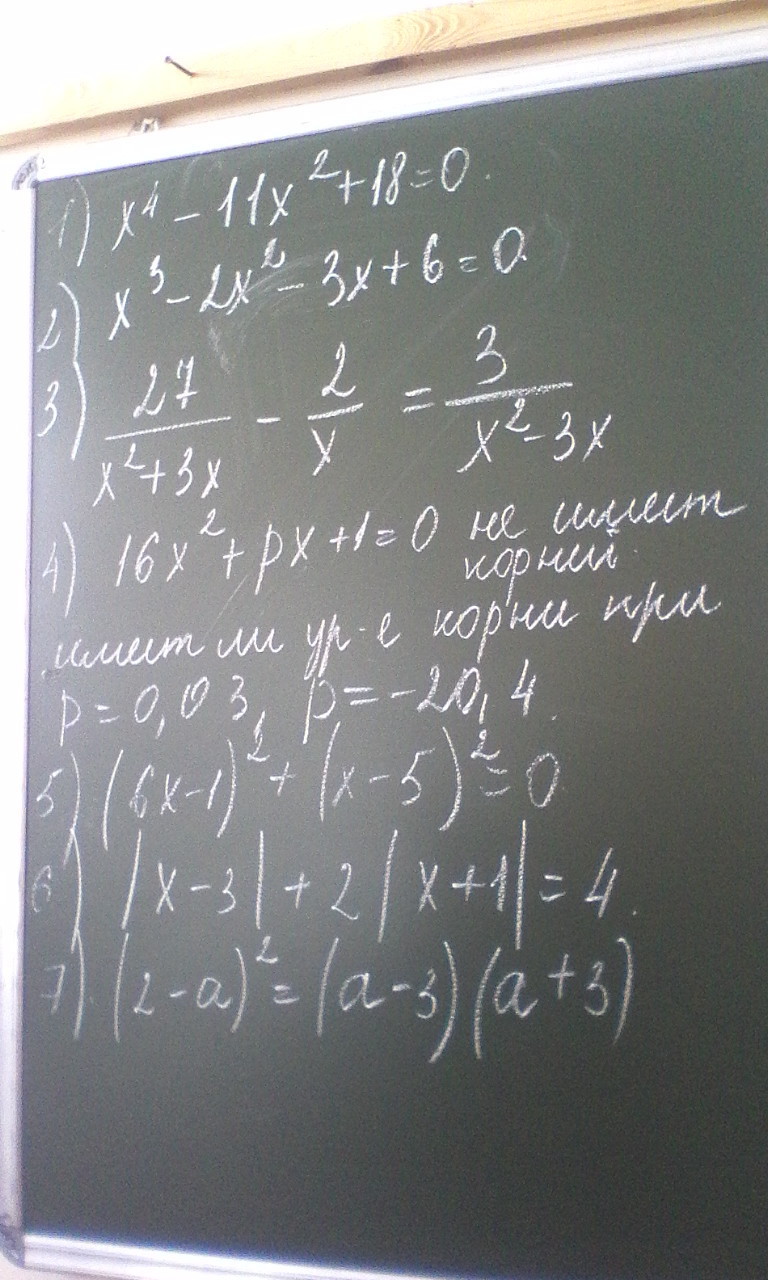 1) x⁴ - 11x² + 18 = 0.
2) x³ - 2x² - 3x + 6 = 0
3) 27/(x² + 3x) - 2/x = 3/(x² - 3x)
4) 16x² + px + 1 = 0 не имеет
корней.
имеет ли ур-е корни при
p = 0,03, p = -20,4.
5) (6x - 1)² + (x - 5)² = 0
6) |x - 3| + 2|x + 1| = 4.
7). (2 - a)² = (a - 3)(a + 3)